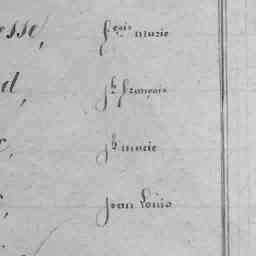 esse, fçois marie
d, jh françois
jh marie
jean Louis